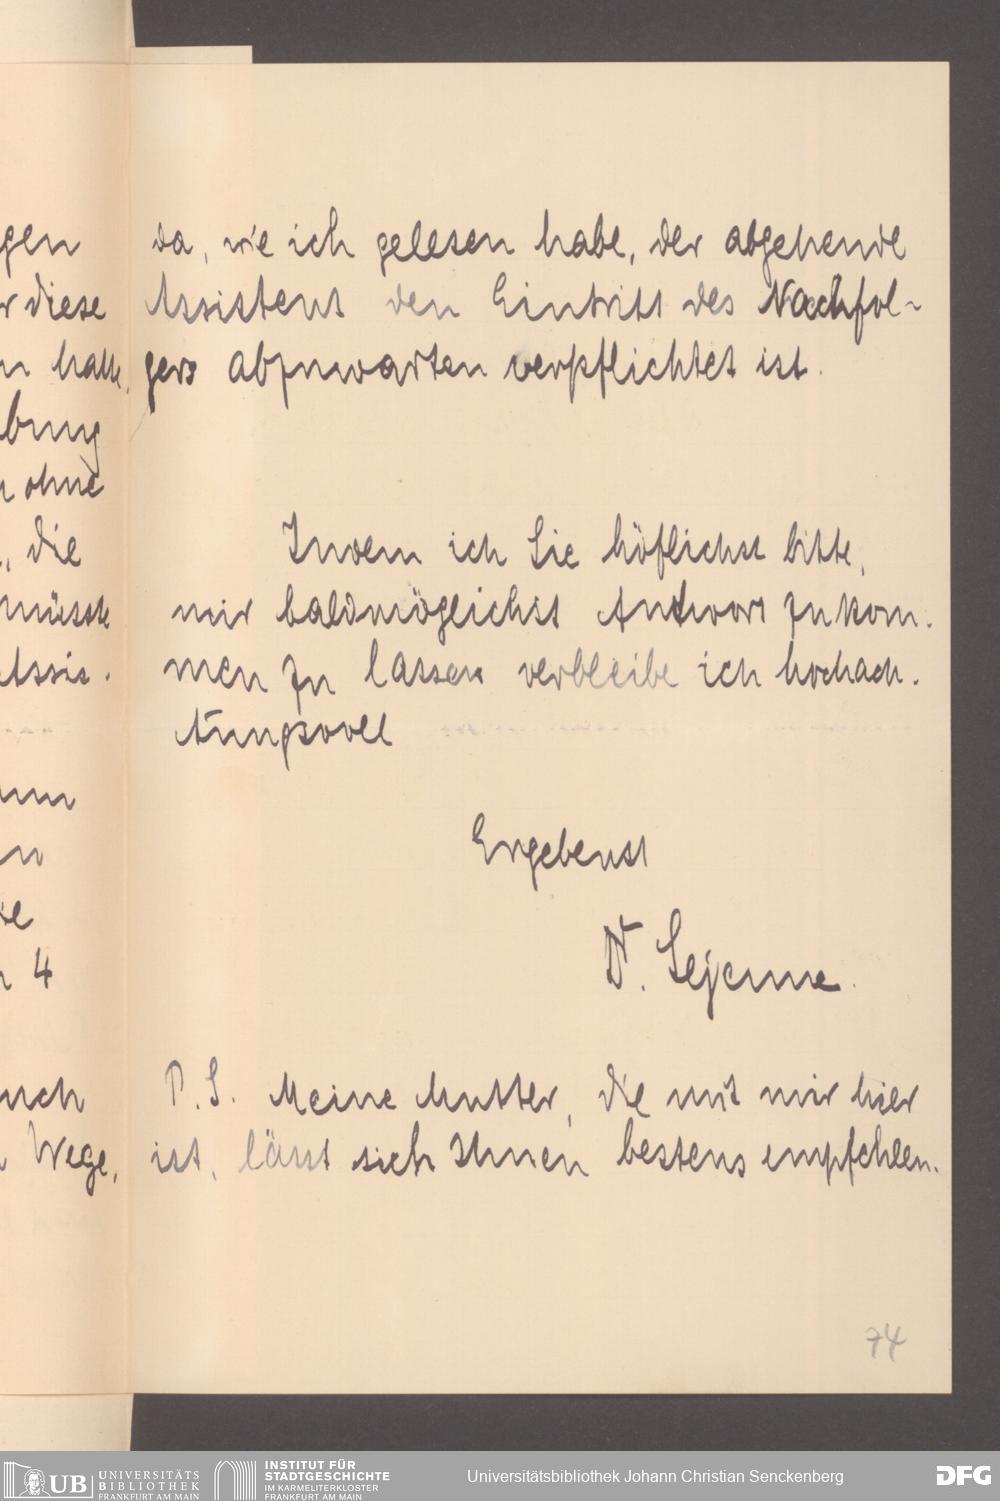 gen
r diese
n hatte,
bung
n ohne
, die
müsste
Assis-
um
n 4
uch
n Wege,
da, wie ich gelesen habe, der abgehende
Assistent den Eintritt des Nachfol-
gers abzuwarten verpflichtet ist.
Indem ich Sie höflichst bitte,
mir baldmöglichst Antwort zukom-
men zu lassen verbleibe ich hochach-
tungsvoll
Ergebenst
Dr. Lejeune.
P.S. Meine Mutter, die mit mir hier
ist, lässt sich Ihnen bestens empfehlen.
74
UB UNIVERSITÄTS
BIBLIOTHEK
FRANKFURT AM MAIN
INSTITUT FÜR
STADTGESCHICHTE
IM KARMELITERKLOSTER
FRANKFURT AM MAIN
Universitätsbibliothek Johann Christian Senckenberg
DFG